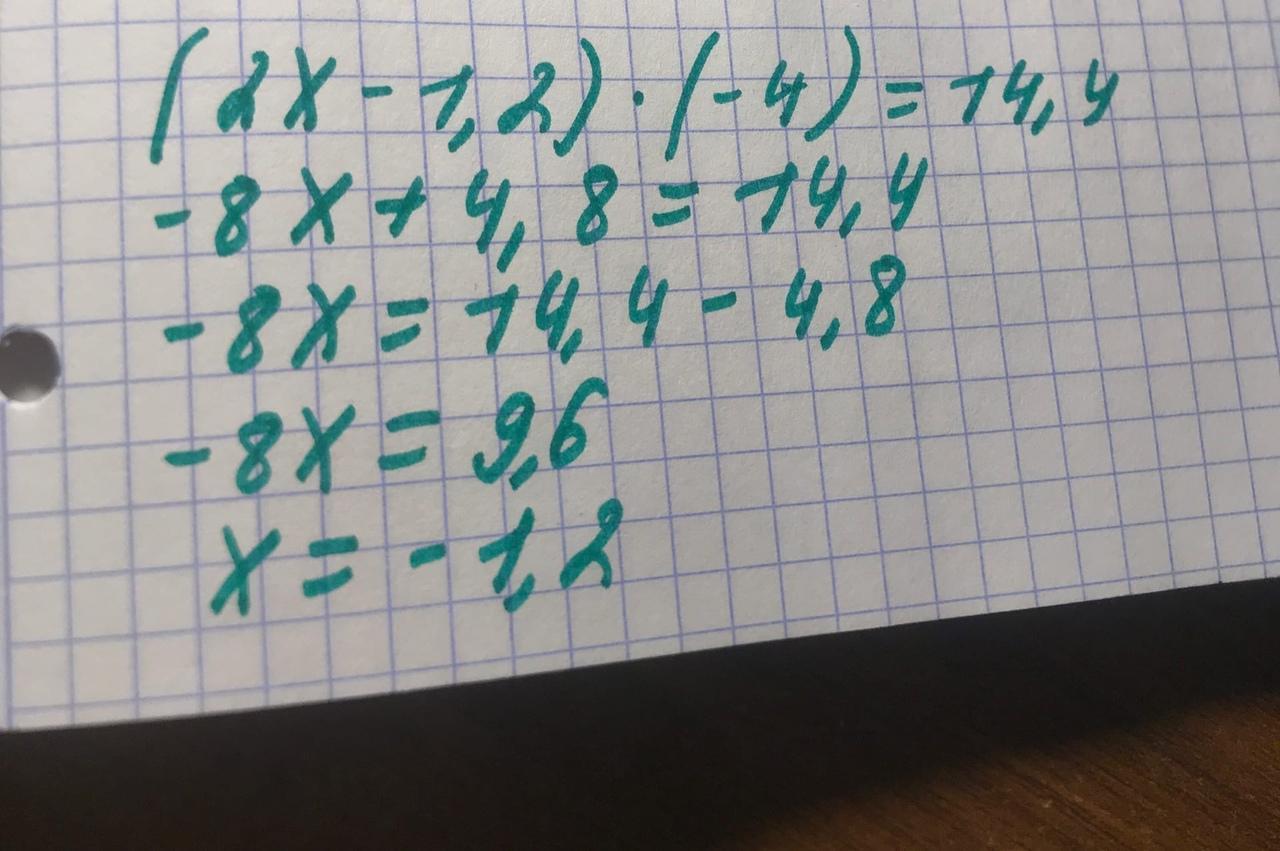 (2x - 1,2) · (-4) = 14,4
-8x + 4,8 = 14,4
-8x = 14,4 - 4,8
-8x = 9,6
x = -1,2